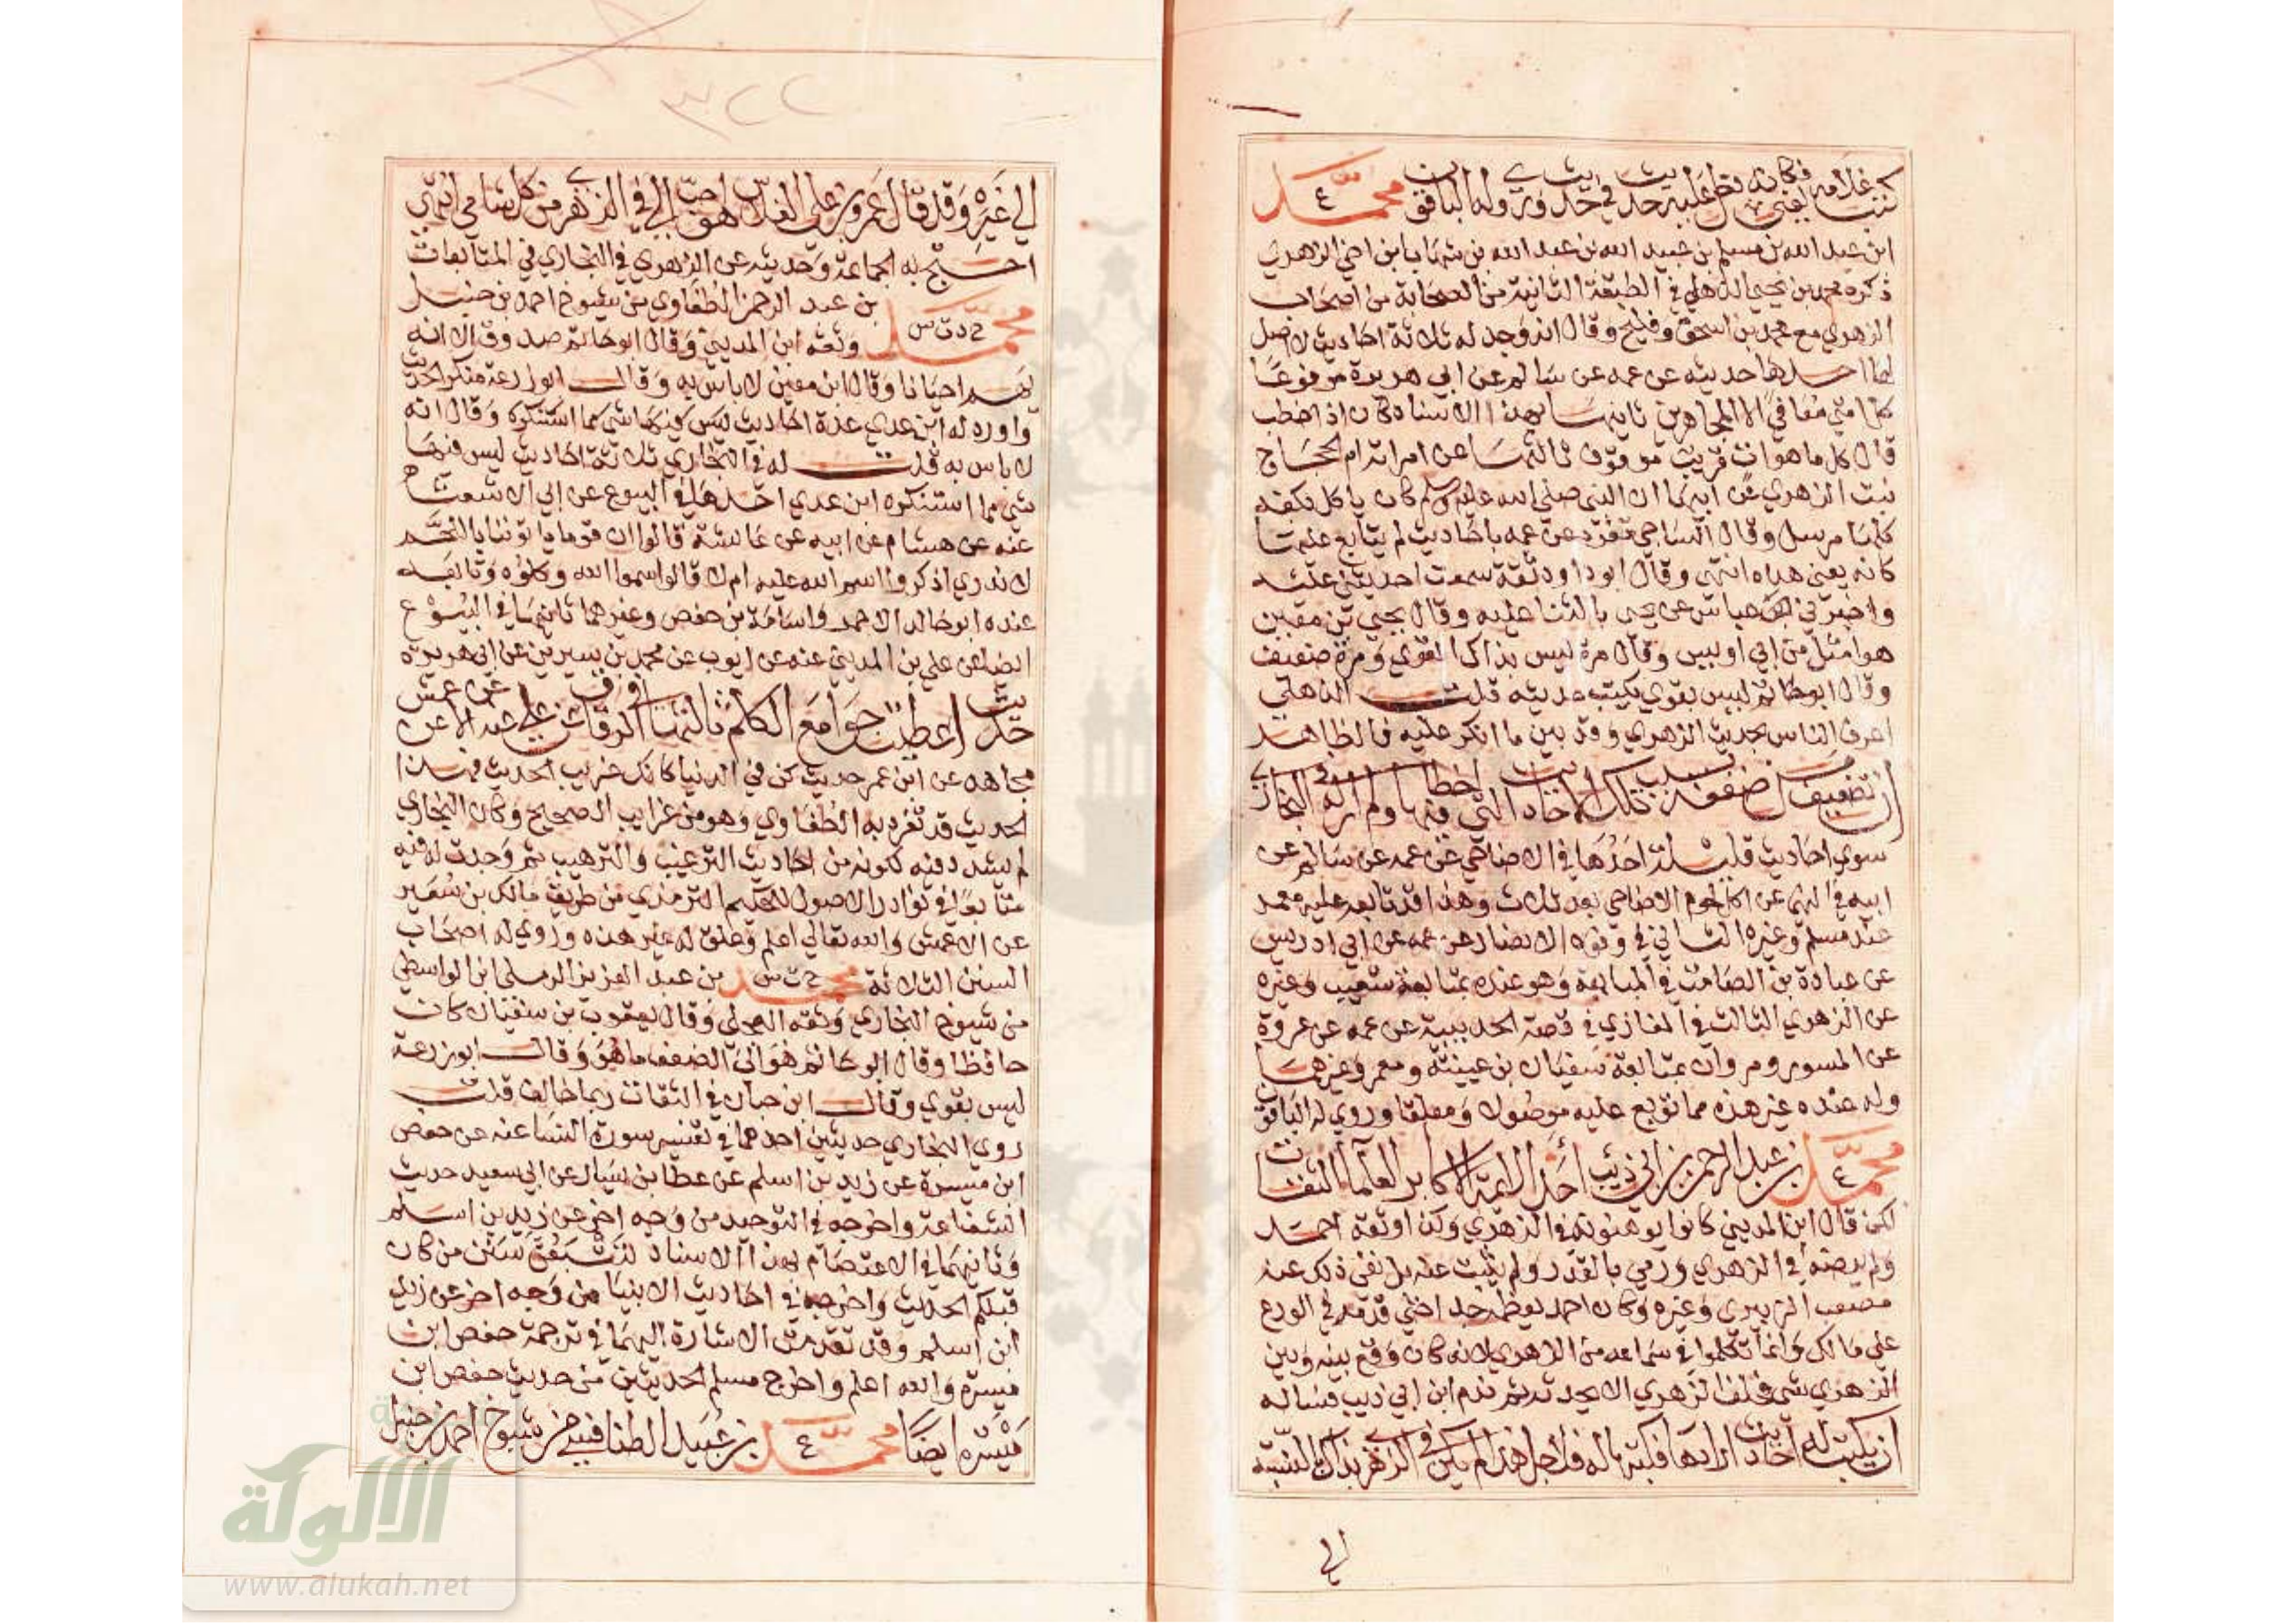 كتب غلامه فكانه يعني نقل عليه حديث في حديث وروى له الباقون محمد ع
ابن عبد الله بن مسلم بن عبيد الله بن عبد الله بن شهاب ابن اخي الزهري
ذكره محمد بن يحيى الذهلي في الطبقة الثانية من اصحاب
الزهري مع محمد بن اسحق وفليح وقال انه وجد له ثلاثة احاديث لا اصل
لها احدها حديثه عن عمه عن سالم عن ابي هريرة مرفوعا
كل امتي معافى الا المجاهرين ثانيها بهذا الاسناد كان اذا خطب
قال كل ما هو ات قريب موقوف ثالثها عن امراته ام الحجاج
بنت الزهري عن ابيها ان النبي صلى الله عليه وسلم كان ياكل بكفه
كلها مرسل وقال الساجي تفرد عن عمه باحاديث لم يتابع عليها
كانه يعني هذه انتهى وقال ابو داود ثقة سمعت احمد يثني عليه
واخبرني عباس عن يحيى بالثنا عليه وقال يحيى بن معين
هو امثل من ابي اويس وقال مرة ليس بذاك القوي ومرة ضعيف
وقال ابو حاتم ليس بقوي يكتب حديثه قلت الذهلي
اعرف الناس بحديث الزهري وقد بين ما انكر عليه فالظاهر
ان تضعيف من ضعفه بسبب تلك الاحاديث التي اخطا فيها ولم ار له في البخاري
سوى احاديث قليلة احدها في الاضاحي عن عمه عن سالم عن
ابيه في النهي عن اكل لحوم الاضاحي بعد ثلاث وهذا قد تابعه عليه معمر
عند مسلم وغيره الثاني في وفود الانصار عن عمه عن ابي ادريس
عن عبادة بن الصامت في المبايعة وهو عنده بمتابعة شعيب وغيره
عن الزهري الثالث في المغازي في قصة الحديبية عن عمه عن عروة
عن المسور ومروان بمتابعة سفيان بن عيينة ومعمر وغيرهما
وله عنده غير هذه مما توبع عليه موصولا ومعلقا وروى له الباقون
محمد ع بن عبد الرحمن بن ابي ذئب احد الائمة الاكابر العلماء الثقات
لكن قال ابن المديني كانوا يوهنونه في الزهري وكذا وثقه احمد
ولم يرضه في الزهري ورمي بالقدر ولم يثبت عنه بل نفى ذلك عنه
مصعب الزبيري وغيره وكان احمد يعظمه جدا حتى قدمه في الورع
على مالك وانما تكلموا في سماعه من الزهري لانه كان وقع بينه وبين
الزهري شي فحلف الزهري الا يحدثه ثم ندم ابن ابي ذيب فساله
ان يكتب له احاديث ارادها فكتبها له فلاجل هذا لم يكن في الزهري بذاك بالنسبة
الى
٣٢٢
الى غيره وقد قال عمرو بن علي الفلاس هو احب الي في الزهري من كل شامي انتهى
احتج به الجماعة وحديثه عن الزهري في البخاري في المتابعات
محمد خ د ت س بن عبد الرحمن الطفاوي من شيوخ احمد بن حنبل
وثقه ابن المديني وقال ابو حاتم صدوق الا انه
يهم احيانا وقال ابن معين لا باس به وقال ابو زرعة منكر الحديث
واورد له ابن عدي عدة احاديث ليس فيها شي مما استنكره وقال انه
لا باس به قلت له في البخاري ثلاثة احاديث ليس فيها
شي مما استنكره ابن عدي احدها في البيوع عن ابي الاشعث
عنه عن هشام عن ابيه عن عائشة قالوا ان قوما ياتوننا باللحم
لا ندري اذكروا اسم الله عليه ام لا قال سموا الله وكلوه وتابعه
عنده ابو خالد الاحمر واسامة بن حفص وغيرهما ثانيها في البيوع
ايضا عن علي بن المديني عنه عن ايوب عن محمد بن سيرين عن ابي هريرة
حديث اعطيت جوامع الكلم ثالثها في الرقاق عن علي عنه عن الاعمش عن
مجاهد عن ابن عمر حديث كن في الدنيا كانك غريب الحديث فهذا
الحديث قد تفرد به الطفاوي وهو من غرايب الصحيح وكان البخاري
لم يشدد فيه لكونه من احاديث الترغيب والترهيب ثم وجدت له فيه
متابعا في نوادر الاصول للحكيم الترمذي من طريق مالك بن سعير
عن الاعمش والله تعالى اعلم وعلق له غير هذه وروى له اصحاب
السنن الثلاثة محمد خ ت س بن عبد العزيز الرملي ابن الواسطي
من شيوخ البخاري وثقه العجلي وقال يعقوب بن سفيان كان
حافظا وقال ابو حاتم هو الى الضعف ما هو وقال ابو زرعة
ليس بقوي وقال ابن حبان في الثقات ربما خالف قلت
روى البخاري حديثين احدهما في تفسير سورة النسا عنه عن حفص
ابن ميسرة عن زيد بن اسلم عن عطا بن يسار عن ابي سعيد حديث
الشفاعة واخرجه في التوحيد من وجه اخر عن زيد بن اسلم
وثانيهما في الاعتصام بهذا الاسناد لتتبعن سنن من كان
قبلكم الحديث واخرجه في احاديث الانبيا من وجه اخر عن زيد
ابن اسلم وقد تقدمت الاشارة اليهما في ترجمة حفص ابن
ميسرة والله اعلم واخرج مسلم الحديثين من حديث حفص ابن
ميسرة ايضا محمد ع بن عبيد الطنافسي من شيوخ احمد بن حنبل
الألوكة
www.alukah.net